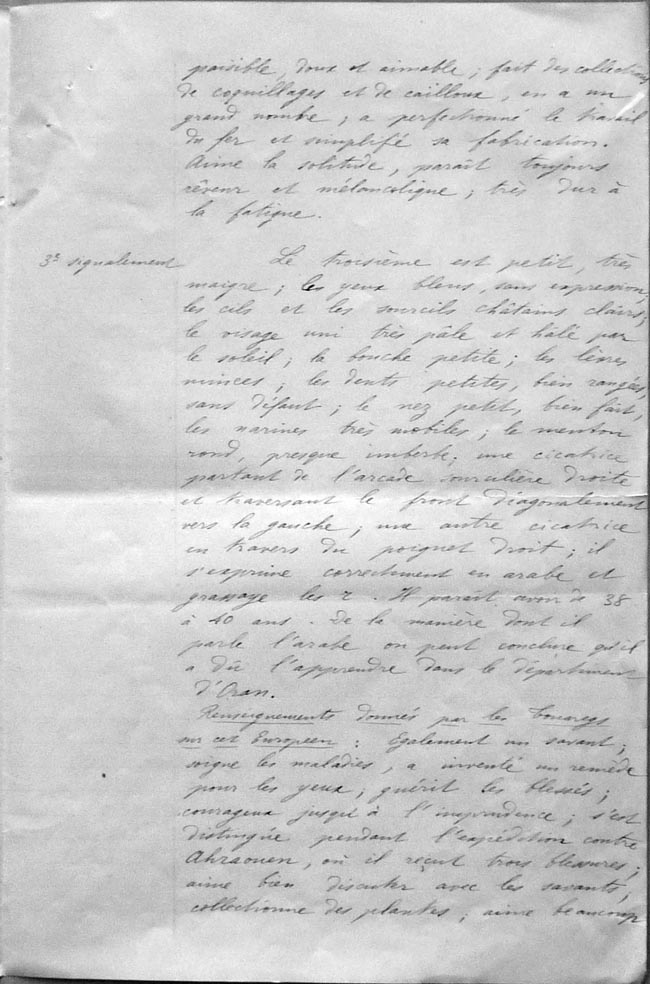 paisible, doux et aimable; fait des collections
de coquillages et de cailloux, en a un
grand nombre; a perfectionné le travail
du fer et simplifié sa fabrication.
Aime la solitude, paraît toujours
rêveur et mélancolique; très dur à
la fatigue.
3e signalement
Le troisième est petit, très
maigre; les yeux bleus, sans expression;
les cils et les sourcils châtains clairs;
le visage uni très pâle et hâlé par
le soleil; la bouche petite; les lèvres
minces; les dents petites, bien rangées,
sans défaut; le nez petit, bien fait,
les narines très mobiles; le menton
rond, presque imberbe; une cicatrice
partant de l'arcade sourcilière droite
et traversant le front diagonalement
vers la gauche; une autre cicatrice
en travers du poignet droit; il
s'exprime correctement en arabe et
grasseye les r. Il paraît avoir de 38
à 40 ans. De la manière dont il
parle l'arabe on peut conclure qu'il
a dû l'apprendre dans le département
d'Oran.
Renseignements donnés par les Touaregs
sur cet Européen: Egalement un savant;
soigne les maladies, a inventé un remède
pour les yeux; guérit les blessés;
courageux jusqu'à l'imprudence; s'est
distingué pendant l'expédition contre
Ahraouen, où il reçut trois blessures;
aime bien discuter avec les savants,
collectionne des plantes; aime beaucoup